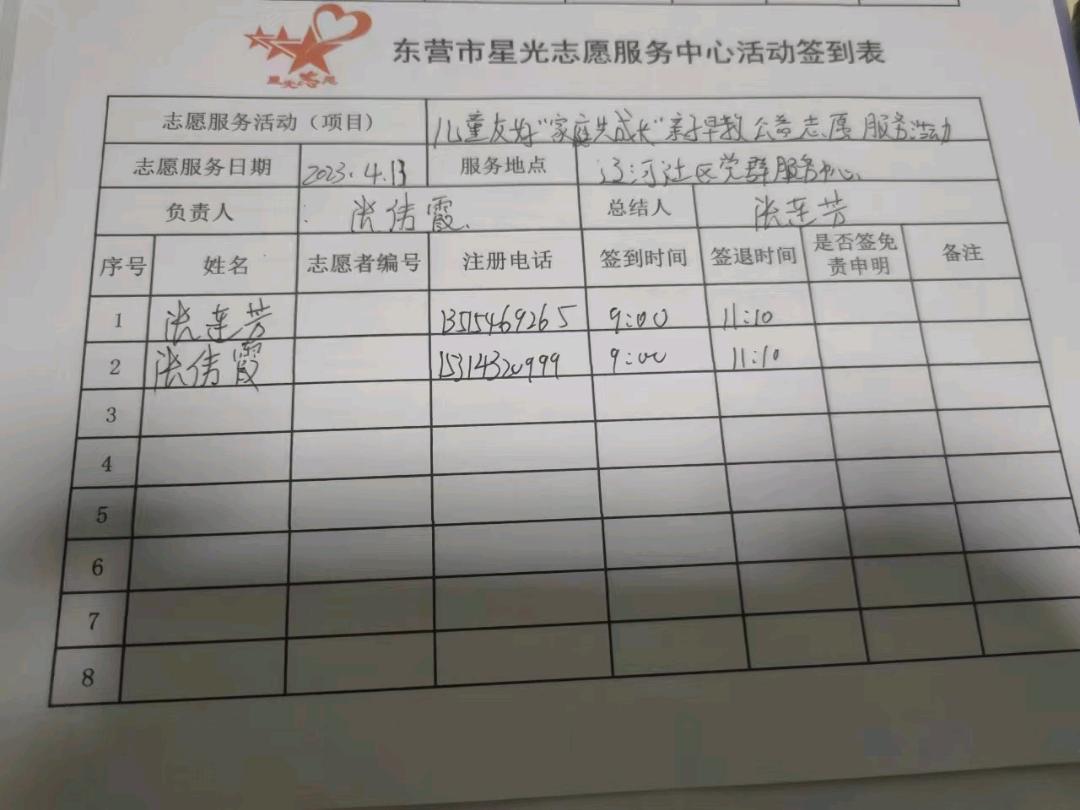 星光志愿
东营市星光志愿服务中心活动签到表
志愿服务活动（项目） 儿童友好"家庭失成长"亲子早教公益志愿服务活动
志愿服务日期 2023.4.13 服务地点 辽河社区党群服务中心.
负责人 : 张伟霞. 总结人 张莲芳
序号 姓名 志愿者编号 注册电话 签到时间 签退时间 是否签免责申明 备注
1 张莲芳 13515469265 9:00 11:10
2 张伟霞 15314320999 9:00 11:10
3
4
5
6
7
8